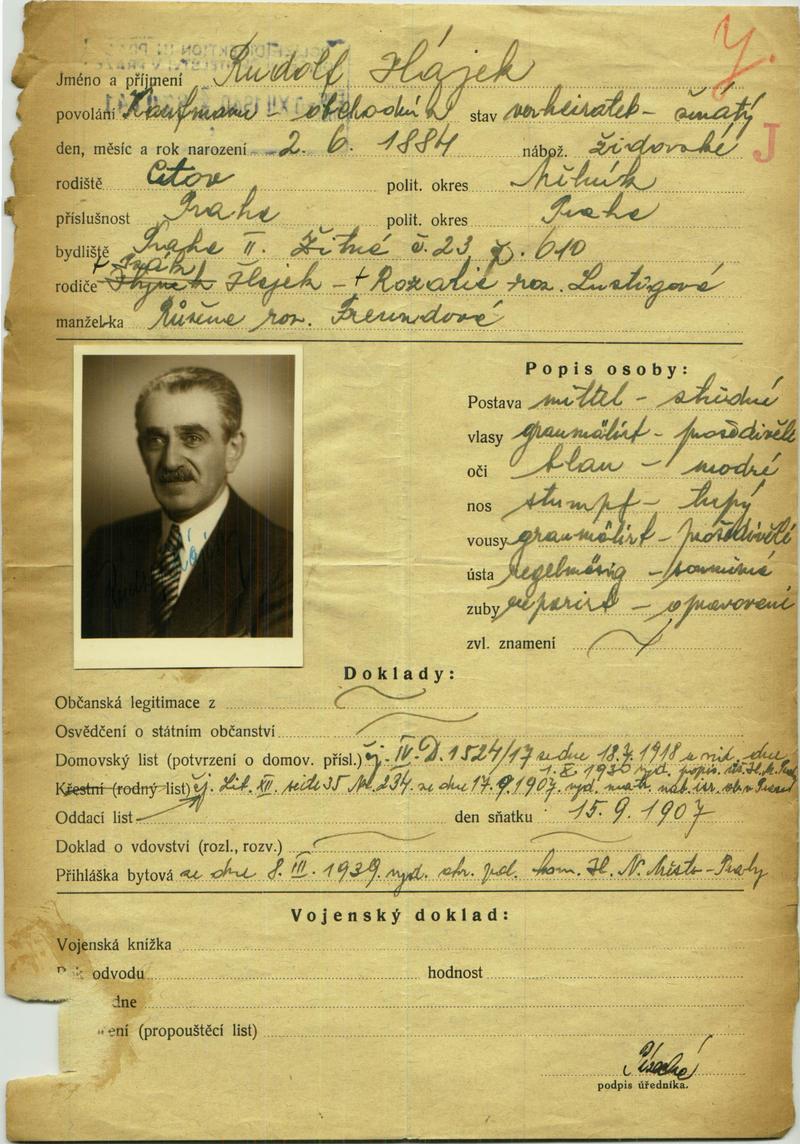 Y.
Jméno a příjmení Rudolf Hájek
povolání Kaufmann - obchodník stav verheiratet - ženatý
den, měsíc a rok narození 2. 6. 1884 nábož. židovské J
rodiště Citov polit. okres Mělník
příslušnost Praha polit. okres Praha
bydliště Praha II. Žitná č. 23 . 610
rodiče + Hynek Hájek - + Rozalie roz. Lustigová
manželka Růžena roz. Freundová
Popis osoby:
Postava mittel - střední
vlasy graumäliert - prošedivělé
oči blau - modré
nos stumpf - tupý
vousy graumäliert - prošedivělé
ústa regelmäsig - souměrná
zuby reparirt - opravované
zvl. znamení
Rudolf Hájek
Doklady:
Občanská legitimace z
Osvědčení o státním občanství
Domovský list (potvrzení o domov. přísl.) čj. IV. D. 1524/17 ze dne 18.7.1918 a vid. dne
1.X. 1930 vyd. popis.
Křestní (rodný list) čj. Lit. XII. seite 35 No. 234. ze dne 17.9.1907. vyd. matr. náb. isr. ob. v Praze
Oddací list den sňatku 15. 9. 1907
Doklad o vdovství (rozl., rozv.)
Přihláška bytová ze dne 8. III. 1939. vyd. kom. N. Město - Prahy
Vojenský doklad:
Vojenská knížka
odvodu hodnost
dne
ení (propouštěcí list)
podpis úředníka.